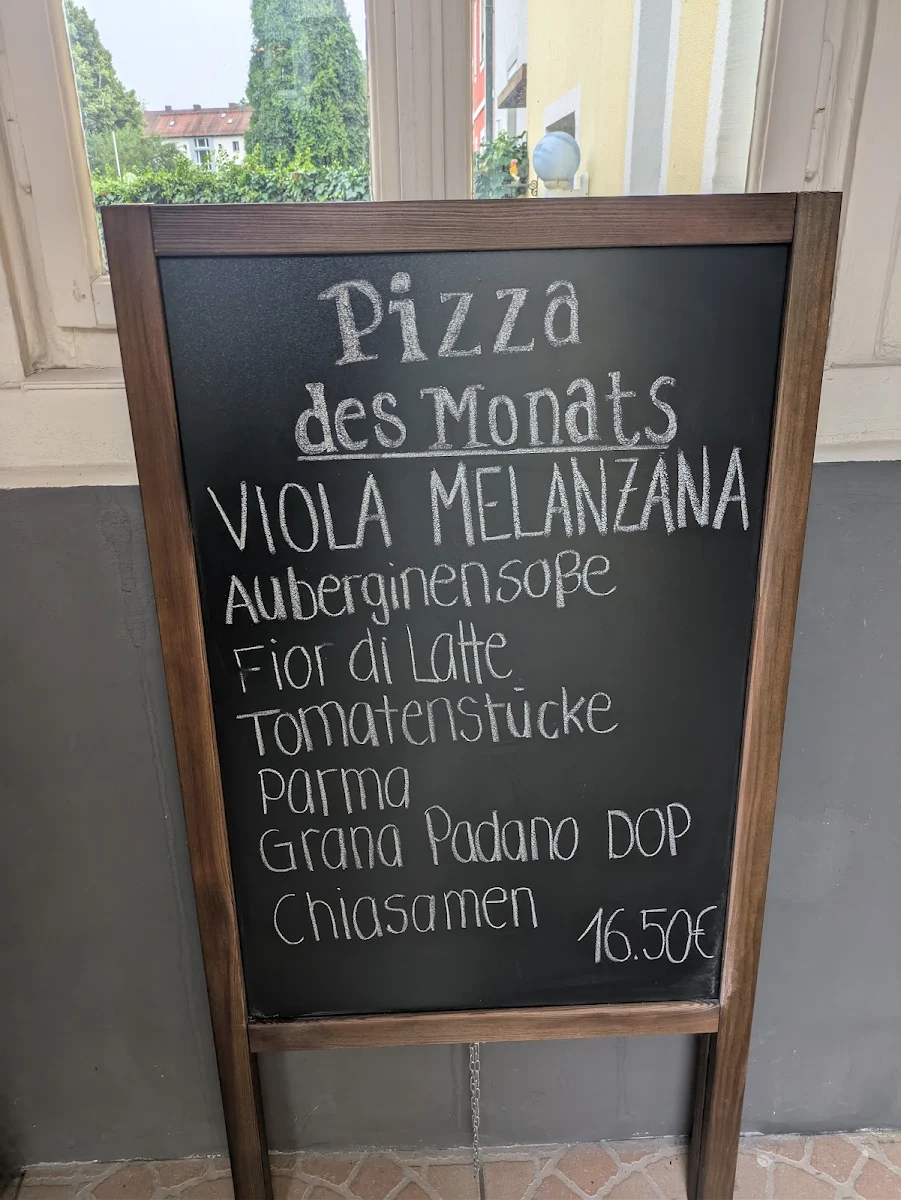 Pizza
des Monats
VIOLA MELANZANA
Auberginensoße
Fior di Latte
Tomatenstücke
Parma
Grana Padano DOP
Chiasamen
16.50€